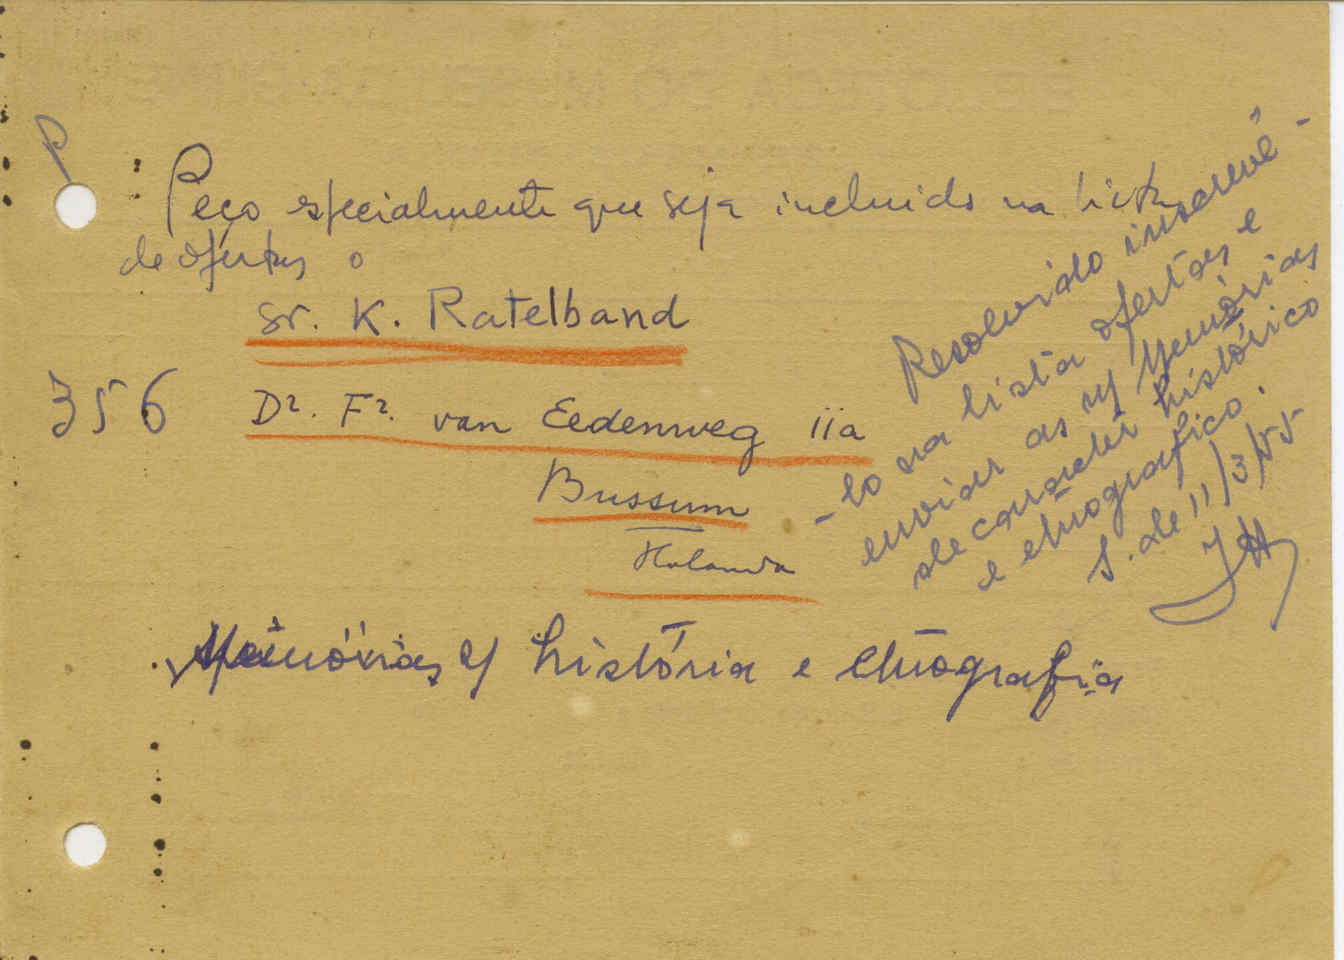 P
Peço especialmente que seja incluido na lista
de ofertas o
Sr. K. Ratelband
356 Dr. Fr. van Eedenweg 11a
Bussum
Holanda
Memórias s/ história e etnografia
Resolvido inscrevê-
-lo na lista ofertas e
enviar as s/ Memórias
de carácter histórico
e etnografico.
S. de 11/3/55